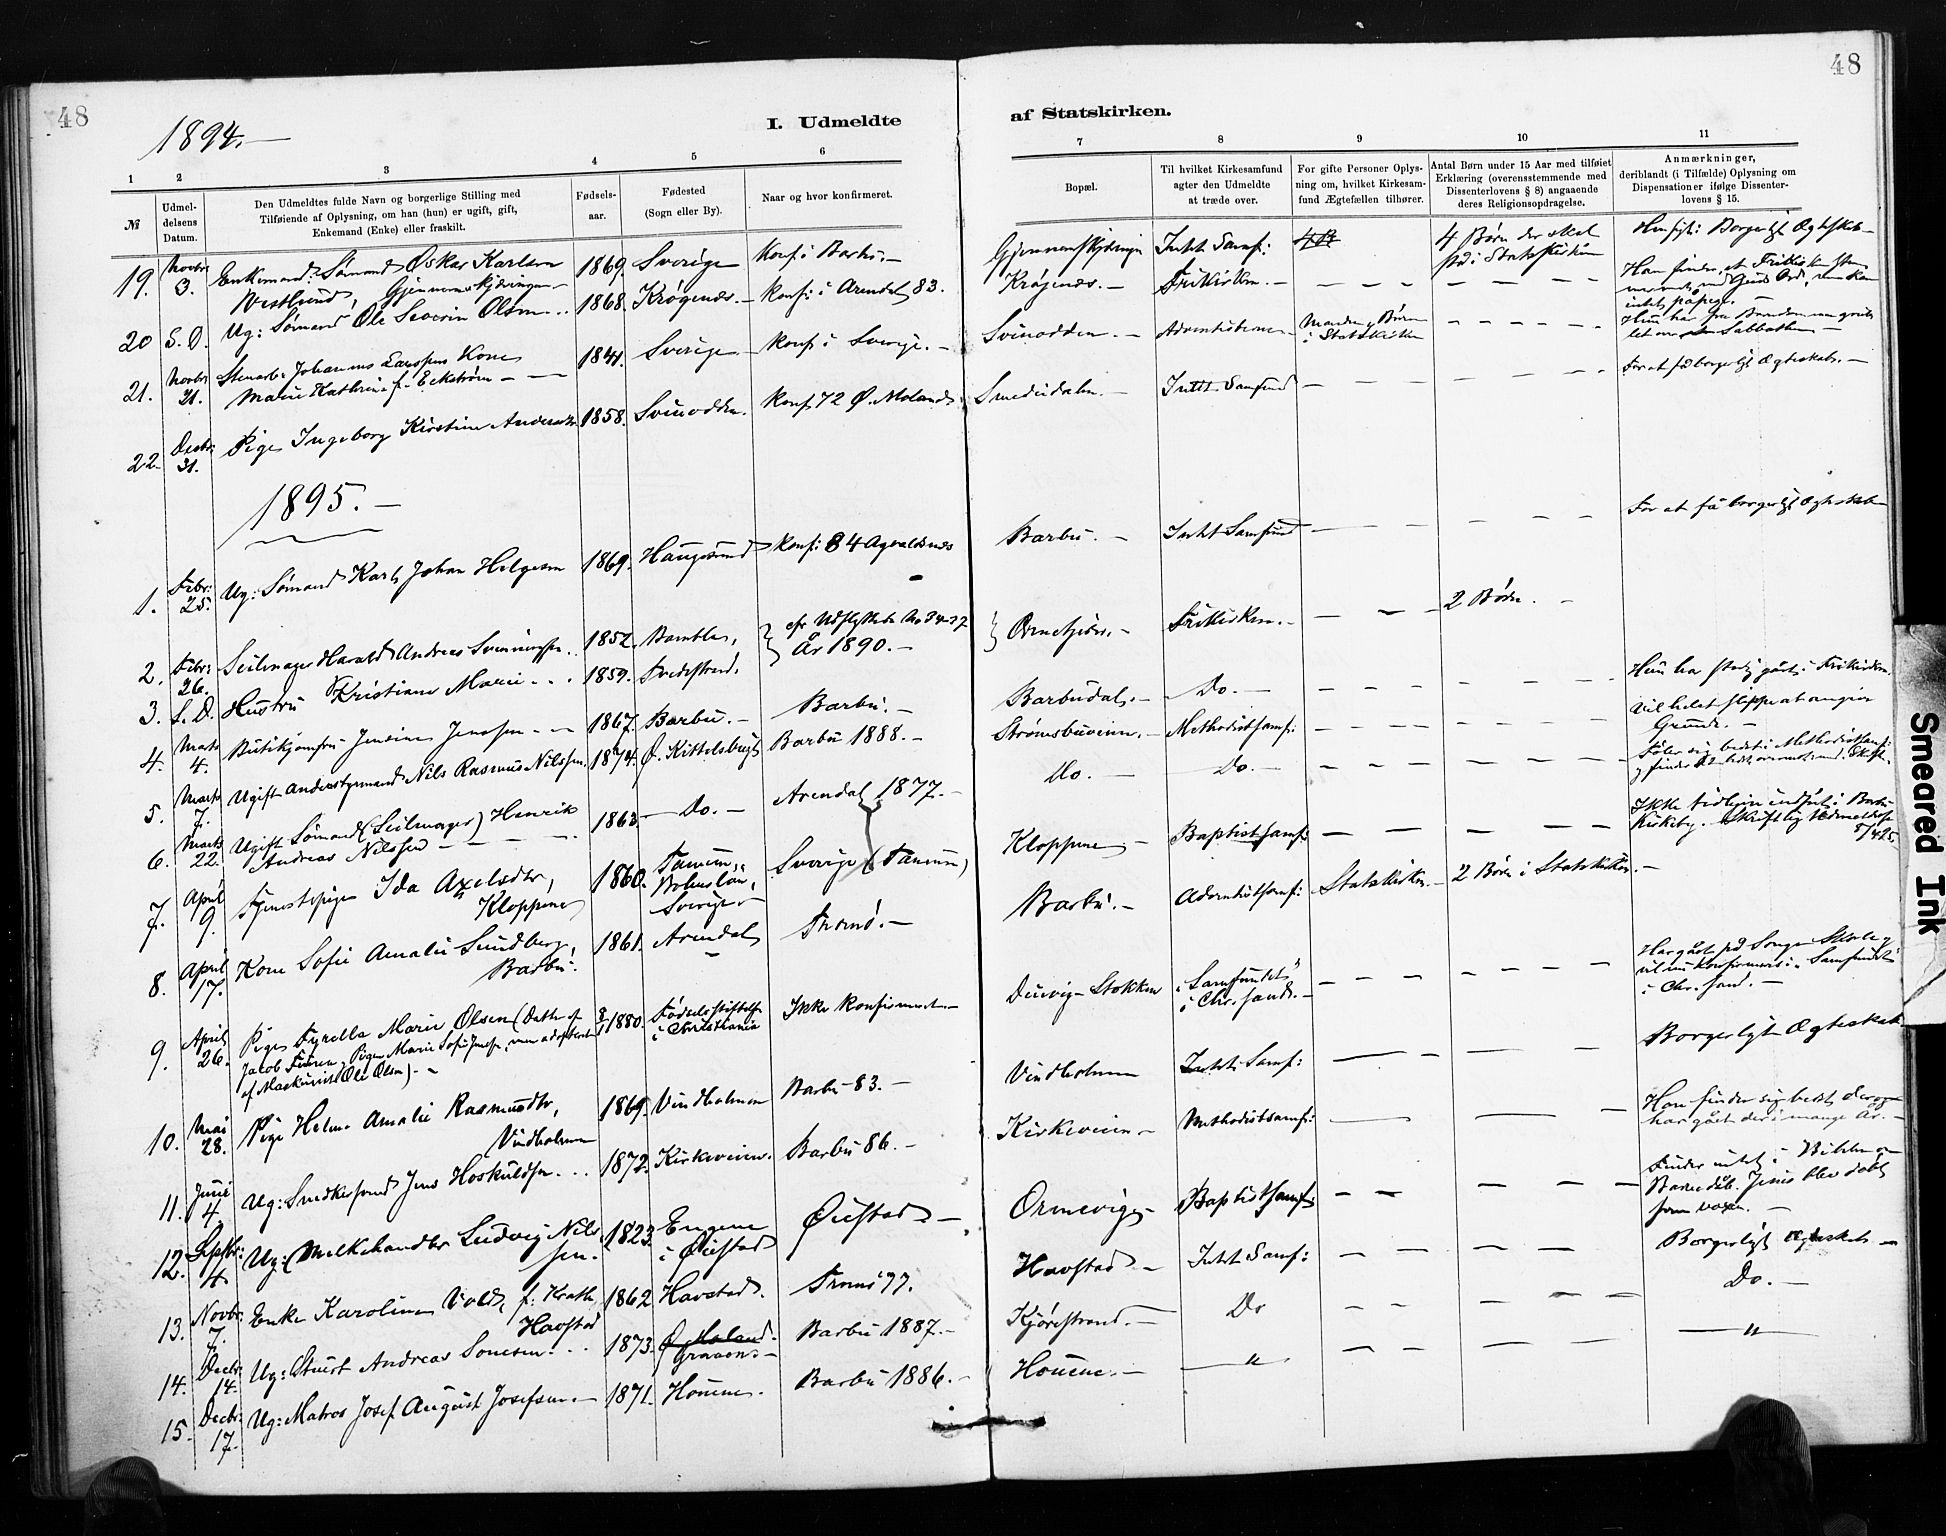 48
48
1894.
I. Udmeldte
af Statskirken.
1 2 3 4 5 6 7 8 9 10 11
№
Udmeldelsens Datum.
Den Udmeldtes fulde Navn og borgerlige Stilling med
Tilføiende af Oplysning, om han (hun) er ugift, gift,
Enkemand (Enke) eller fraskilt.
Fødselsaar.
Fødested
(Sogn eller By).
Naar og hvor konfirmeret.
Bopæl.
Til hvilket Kirkesamfund
agter den Udmeldte
at træde over.
For gifte Personer Oplysning om, hvilket Kirkesamfund Ægtefællen tilhører.
Antal Børn under 15 Aar med tilføiet
Erklæring (overensstemmende med
Dissenterlovens § 8) angaaende
deres Religionsopdragelse.
Anmærkninger,
deriblandt (i Tilfælde) Oplysning om
Dispensationer ifølge Dissenterlovens § 15.
19. Novbr 3. Enkemand: Sømand Oskar Karlsen 1869. Sverige Konf. i Barbu. Intet Samf: 4 Børn der skal Borgerligt Ægteskab
Vestlund, på i Statskirken
20 S. D. Ug: Sømand Ole Severin Olsen 1868. Krøgenes. Konf: i Arendal 83. Krøgenes. Frikirken.
21. Novbr 21. Stenarb: Johannes Larssens Kone 1841. Sverige Konf i Sverige. Svinodden Adventisterne Mand og Børn
Marie Kathrine f. Eckstrøm i Statskirken
22. Decbr: 31. Pige Ingeborg Kirstine Andersdtr 1858. Svinodden. Konf 72 Ø. Moland. Smededalen. Intet Samfund For at få borgerligt Ægteskab.
1895.
1. Febr: 25. Ug: Sømand Karl Johan Helgesen 1869. Haugesund Konf: 84 Agvaldsnes Barbu. Intet Samfund For at få borgerligt Ægteskab
2. Febr: 26. Seilmager Harald Andreas Svenningsen 1852. Bamble, cfr Udflyttede No 34-37 Frikirken. 2 Børn.
3. S. D. Hustru Kristiane Marie 1859. Tvedestrand. År 1890.
4. Marts 4. Butikjomfru Jensine Jensen 1867. Barbu. Barbu. Barbudal. Do. Hun har stadig gåt i Frikirken.
5. Marts 7. Ugift Andenstyrmand Nils Rasmus Nilssen. 1874. Ø. Kittelsbugt Barbu 1888. Strømsbuveien. Methodistsamf: Vil helst slippe at angive
Grunde.
6. Marts 22. Ugift Sømand (Seilmager) Henrik 1863 Do. Arendal 1877. Do. Do.
Andreas Nilssen
7. April 9. Tjenestepige Ida Axelsdtr, 1860. Tanum, Sverige (Tanum) Kloppene Baptistsamf: Ikke tidligere indført i Barbu
Kloppene Bohuslän, Kirkebog. Skriftlig Udmeldelse
Sverige
8. April 17. Kone Sofie Amalie Sundberg, 1861. Arendal Tromø. Barbu. Adventistsamf: Statskirken. 2 Børn i Statskirken.
Barbu.
9. April 26. Pige Fyrella Marie Olsen (Datter af 1880. Fødselsstiftelsen Ikke konfirmeret Stokken "Samfundet" Har gået på Songe Skole og
Jacob Pige Marie Sofie men adopteret i Christiania i Chr. sand. vil nu konfirmeres i Samfundet
af Maskinist Ole Olsen) i Chr. sand.
10. Mai 28. Pige Helene Amalie Rasmusdtr, 1869. Vindholmen Barbu 83. Vindholmen Intet Samf: Borgerligt Ægteskab
Vindholmen
11. Juni 4 Ug: Snedkersvend Jens Hoskuldsen 1872. Kirkeveien. Barbu 86. Kirkeveien Methodistsamf: Han finder sig bedst derog
har gået der i mange År.
12. Septbr: 4 Ug: Melkehandler Ludvig Nilssen. 1823. Engene Øiestad Ormevig Baptistsamf: Finder intet i Bibelen om
i Øiestad Barnedåb. Jesus blev døbt
som voxen.
13. Novbr 7. Enke Karoline Vold, f. 1862 Havstad. Tromø 77. Havstad Intet Samf: Borgerligt Ægteskab
Havstad
14. Decbr: 14. Ug: Stuert Andreas Sonesen 1873. Ø. Moland. Barbu 1887. Do Do.
15. Decbr: 17. Ug: Matros Josef August Josefsen 1871. Houene. Barbu 1886. Houene. " "
Smeared Ink